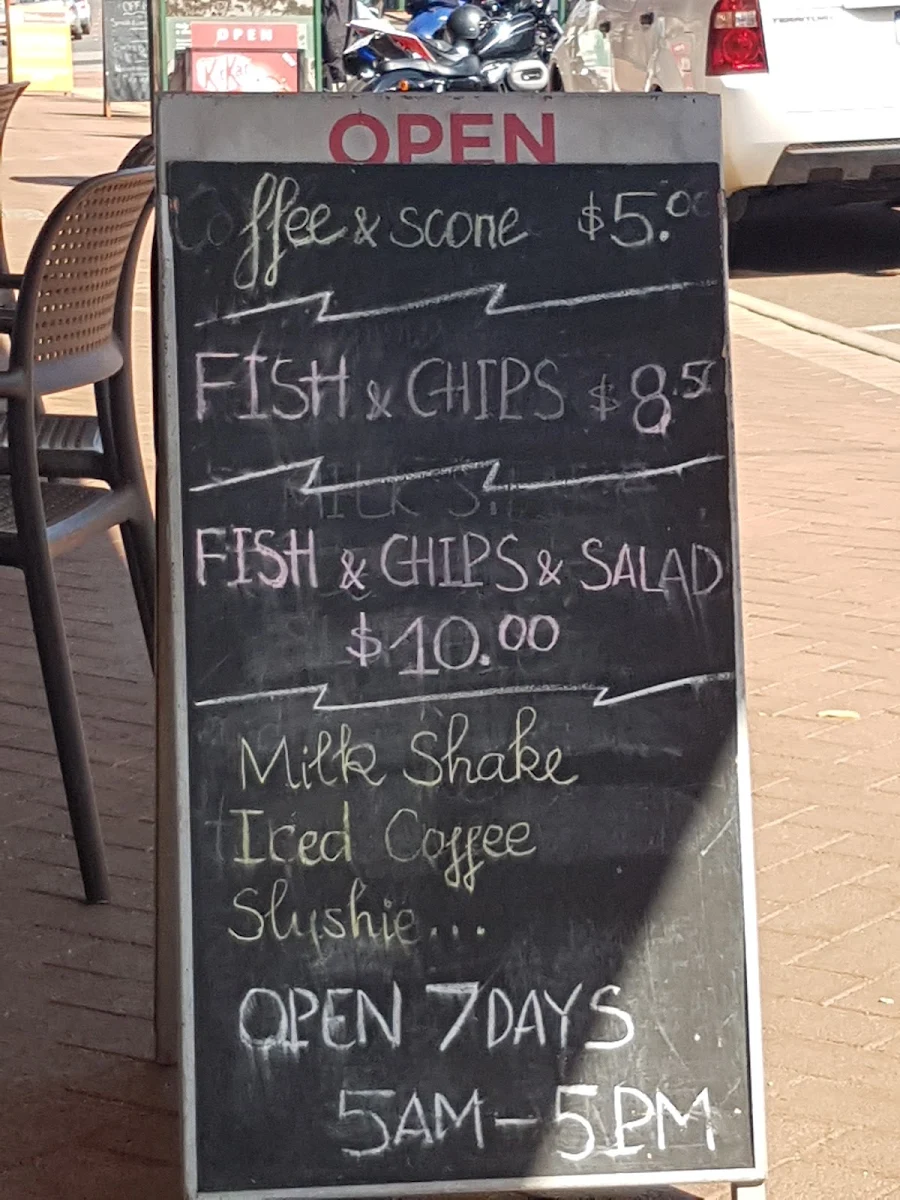 OPEN
KitKat
OPEN
Coffee & scone $5.00
FISH & CHIPS $8.50
FISH & CHIPS & SALAD
$10.00
Milk Shake
Iced Coffee
Slushie...
OPEN 7 DAYS
5AM - 5PM